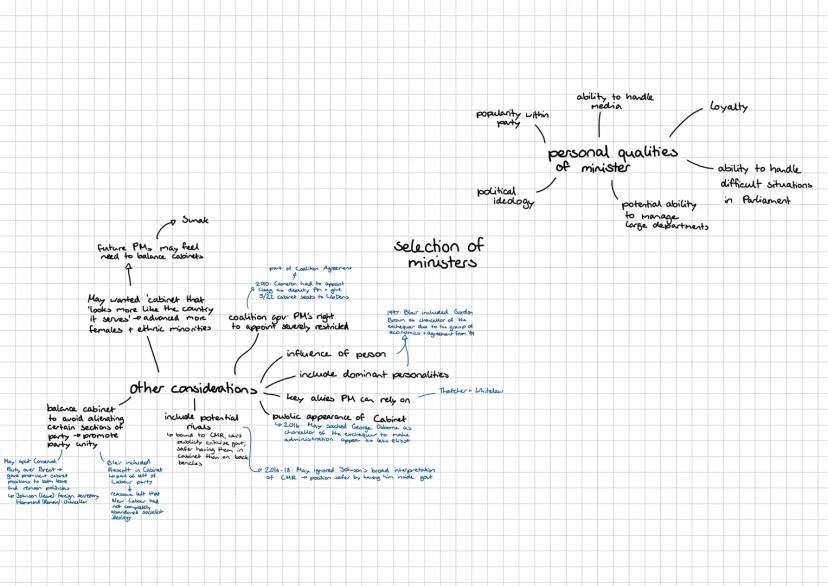 ability to handle
media
popularity within
party
loyalty
personal qualities
of minister
ability to handle
difficult situations
in Parliament
political
ideology
potential ability
to manage
large departments
selection of
ministers
Sunak
future PMs may feel
need to balance cabinets
May wanted 'cabinet that
'looks more like the country
it serves' → advanced more
females + ethnic minorities
part of Coalition Agreement
2010: Cameron had to appoint
Clegg as deputy PM + give
5/22 cabinet seats to LibDems
coalition gov: PM's right
to appoint severely restricted
1997: Blair included Gordon
Brown as chancellor of the
exchequer due to his grasp of
economics + agreement from '94
other considerations
influence of person
include dominant personalities
key allies PM can rely on
Thatcher + Whitelaw
public appearance of Cabinet
↳ 2016: May sacked George Osborne as
chancellor of the exchequer to make
administration appear as less elitist
balance cabinet
to avoid alienating
certain sections of
party → promote
party unity
include potential
rivals
↳ bound to CMR, can't
publicly criticise govt,
safer having them in
cabinet than on back
benches
2016-18: May ignored Johnson's broad interpretation
of CMR → position safer by having him inside govt
May: split Conserv.
Party over Brexit →
gave prominent cabinet
positions to both leave
and remain politicians
↳ Johnson (leave) foreign secretary
Hammond (Remain) Chancellor
Blair included
Prescott in Cabinet
↳ part of left of
Labour party
reassure left that
New Labour had
not completely
abandoned socialist
ideology